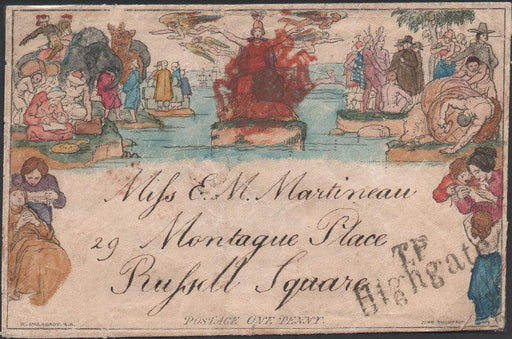 Miss E. M. Martineau
29 Montague Place
Russell Square
T.P
Highgate
W. MULREADY. R.A.
POSTAGE ONE PENNY.
JOHN THOMPSON